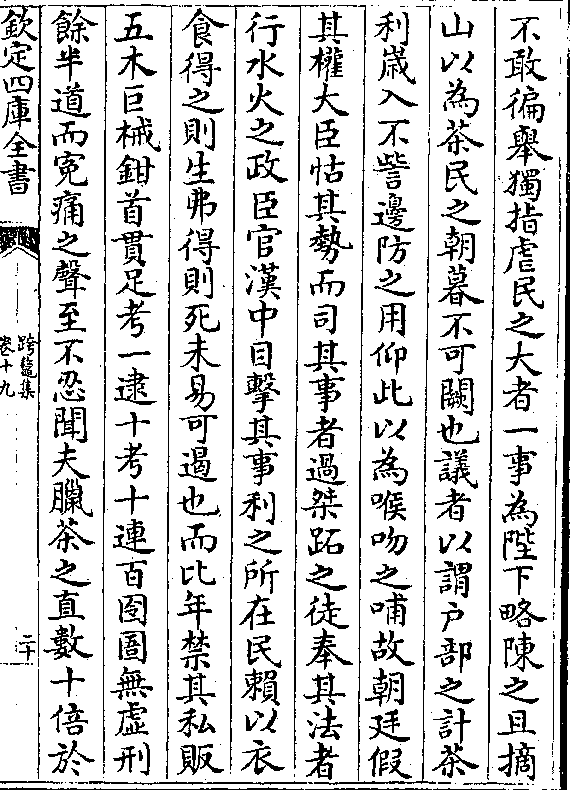 不敢徧舉獨指虐民之大者一事為陛下略陳之且摘
山以為茶民之朝暮不可闕也議者以謂户部之計茶
利嵗入不訾邊防之用仰此以為喉吻之哺故朝廷假
其權大臣怙其勢而司其事者過桀跖之徒奉其法者
行水火之政臣官漢中目擊其事利之所在民賴以衣
食得之則生弗得則死未易可遏也而比年禁其私販
五木巨械鉗首貫足考一逮十考十連百囹圄無虚刑
餘半道而寃痛之聲至不忍聞夫臘茶之直數十倍於
欽定四庫全書
跨鼇集
卷十九
二十